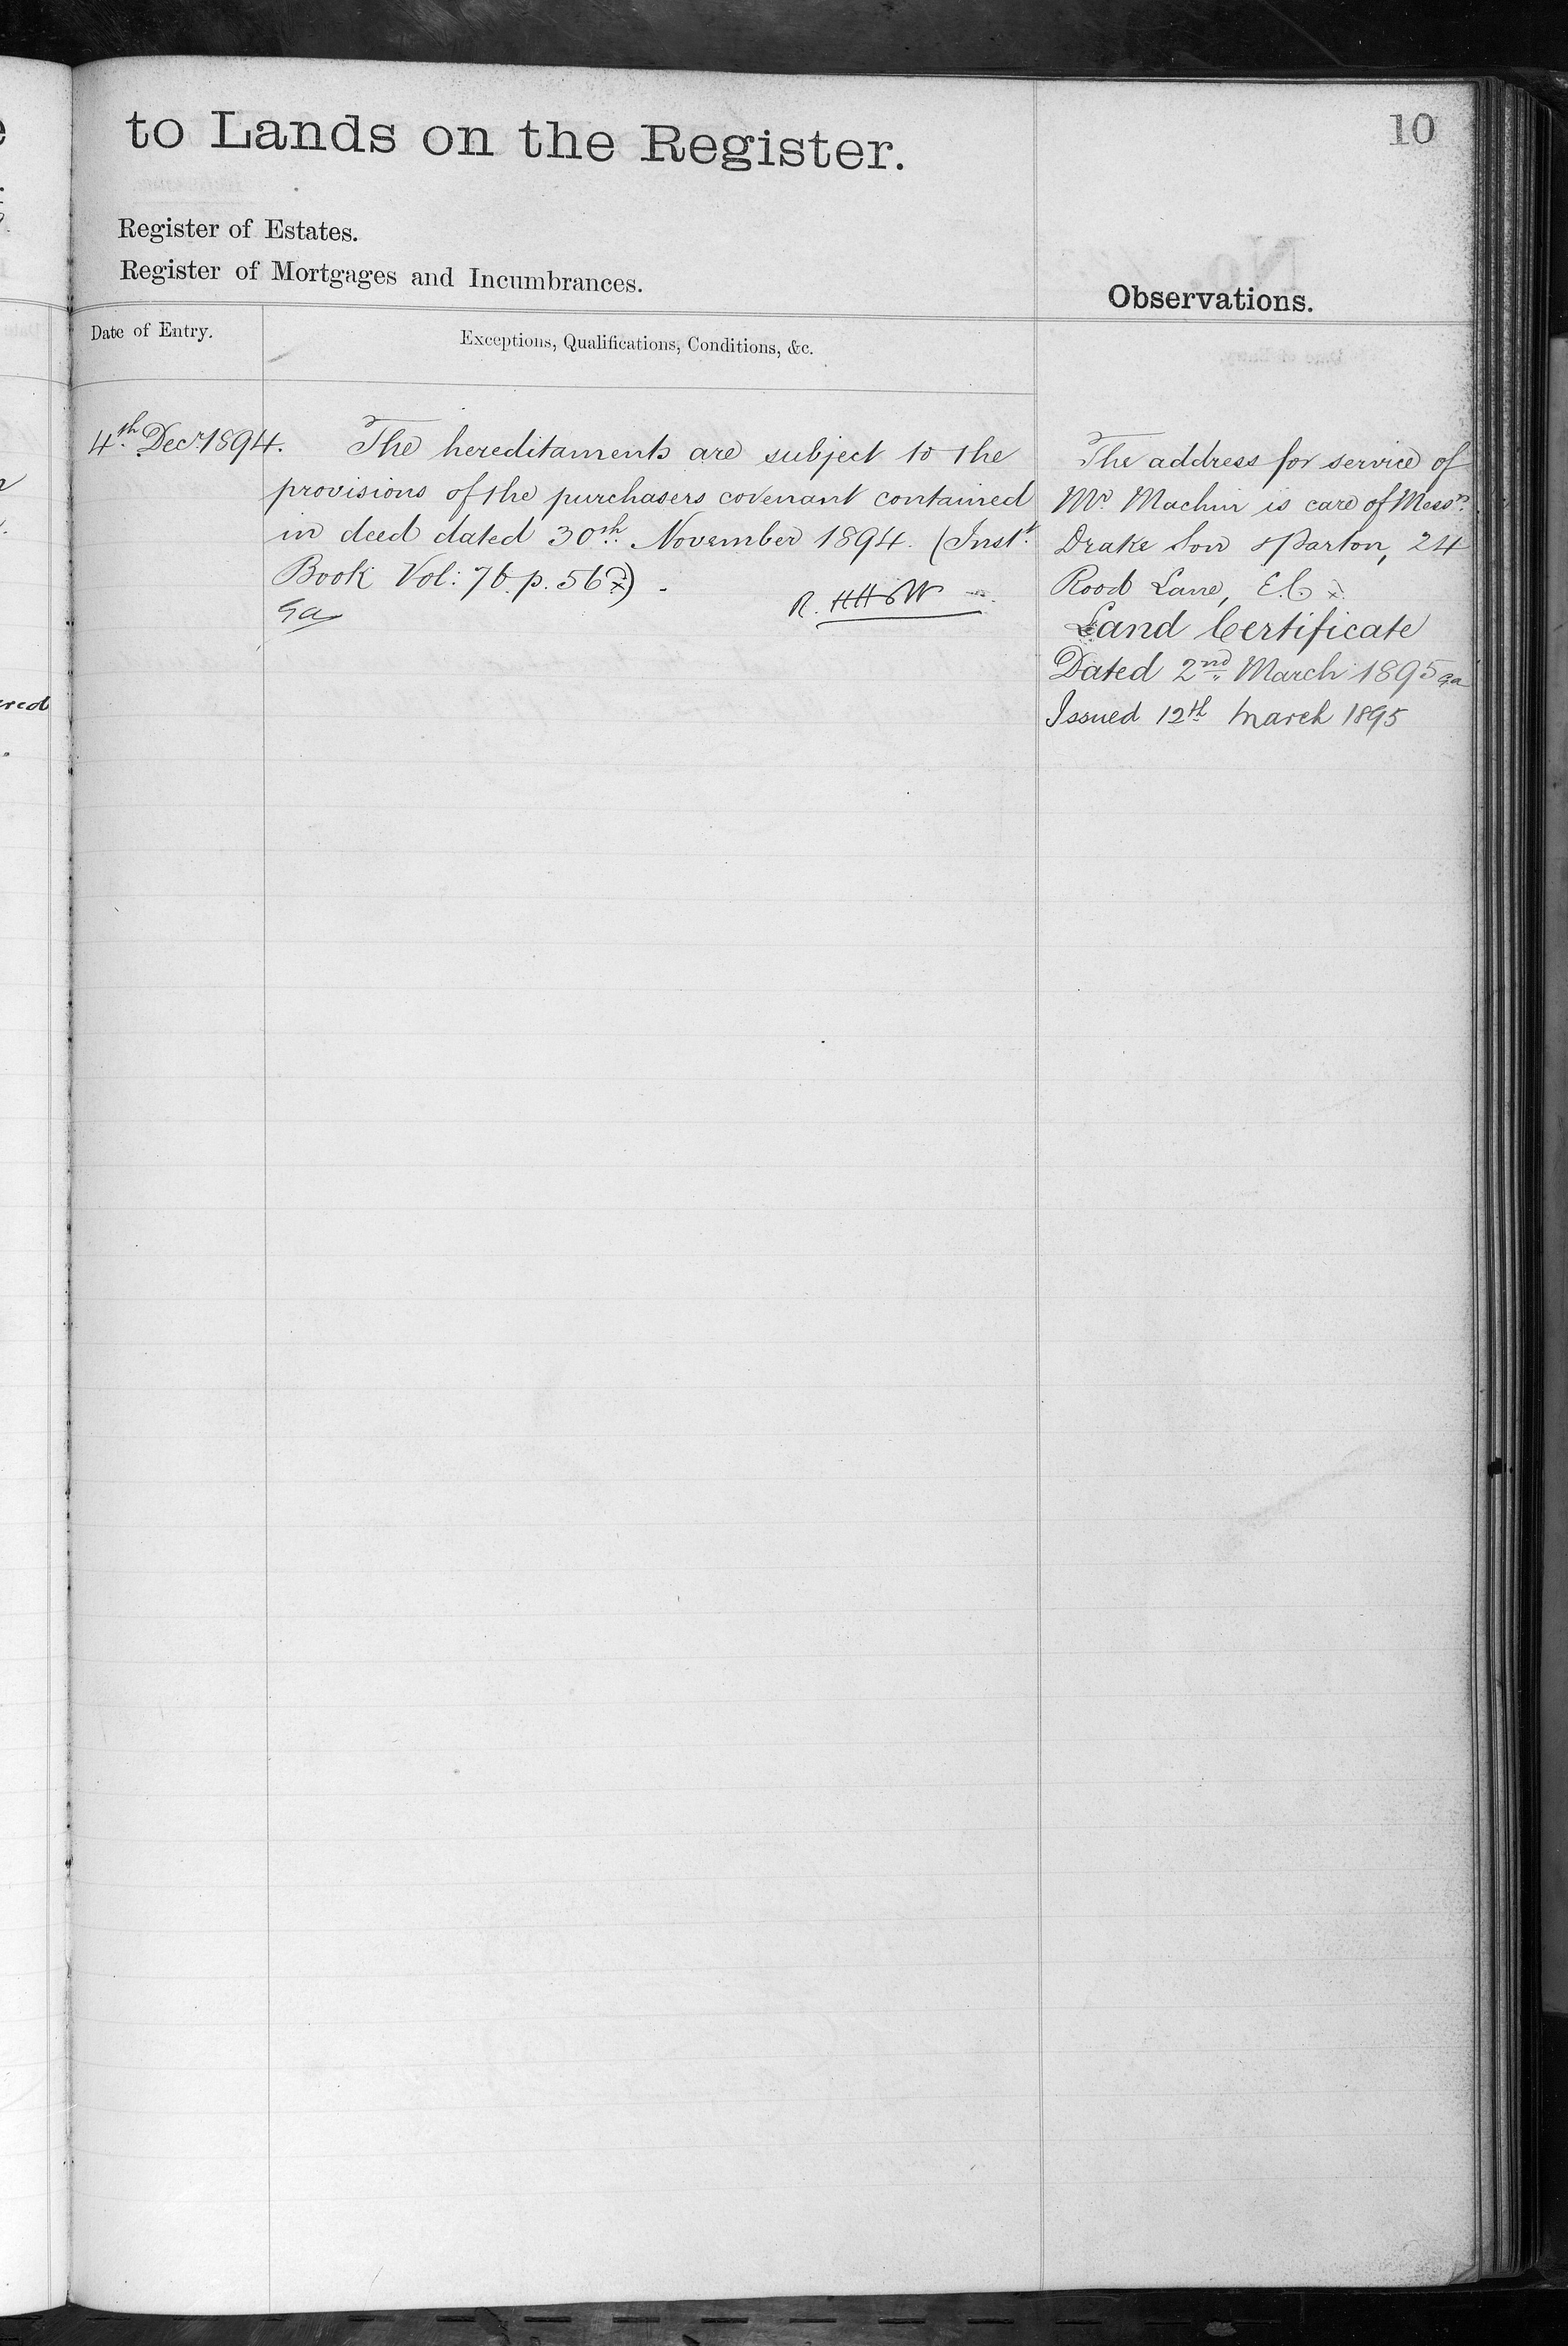 to Lands on the Register.
10
Register of Estates.
Register of Mortgages and Incumbrances.
Observations.
Date of Entry.
Exceptions, Qualifications, Conditions, &c.
4th Decr 1894.
The hereditaments are subject to the
provisions of the purchasers covenant contained
in deed dated 30th November 1894. (Inst.
Book Vol: 76. p. 56
The address for service of
Mr Machin is care of Messrs
Drake Son & Parton, 24
Rood Lane, E.C.
Land Certificate
Dated 2nd March 1895
Issued 12th March 1895